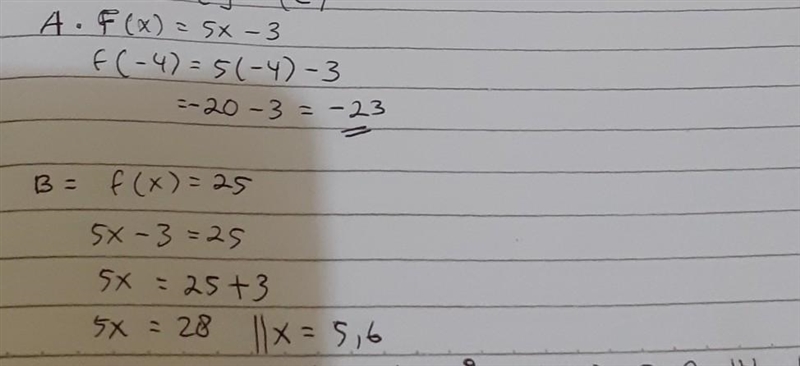 A. F(x) = 5x - 3
f(-4) = 5(-4) - 3
= -20 - 3 = -23
B = f(x) = 25
5x - 3 = 25
5x = 25 + 3
5x = 28 || x = 5,6